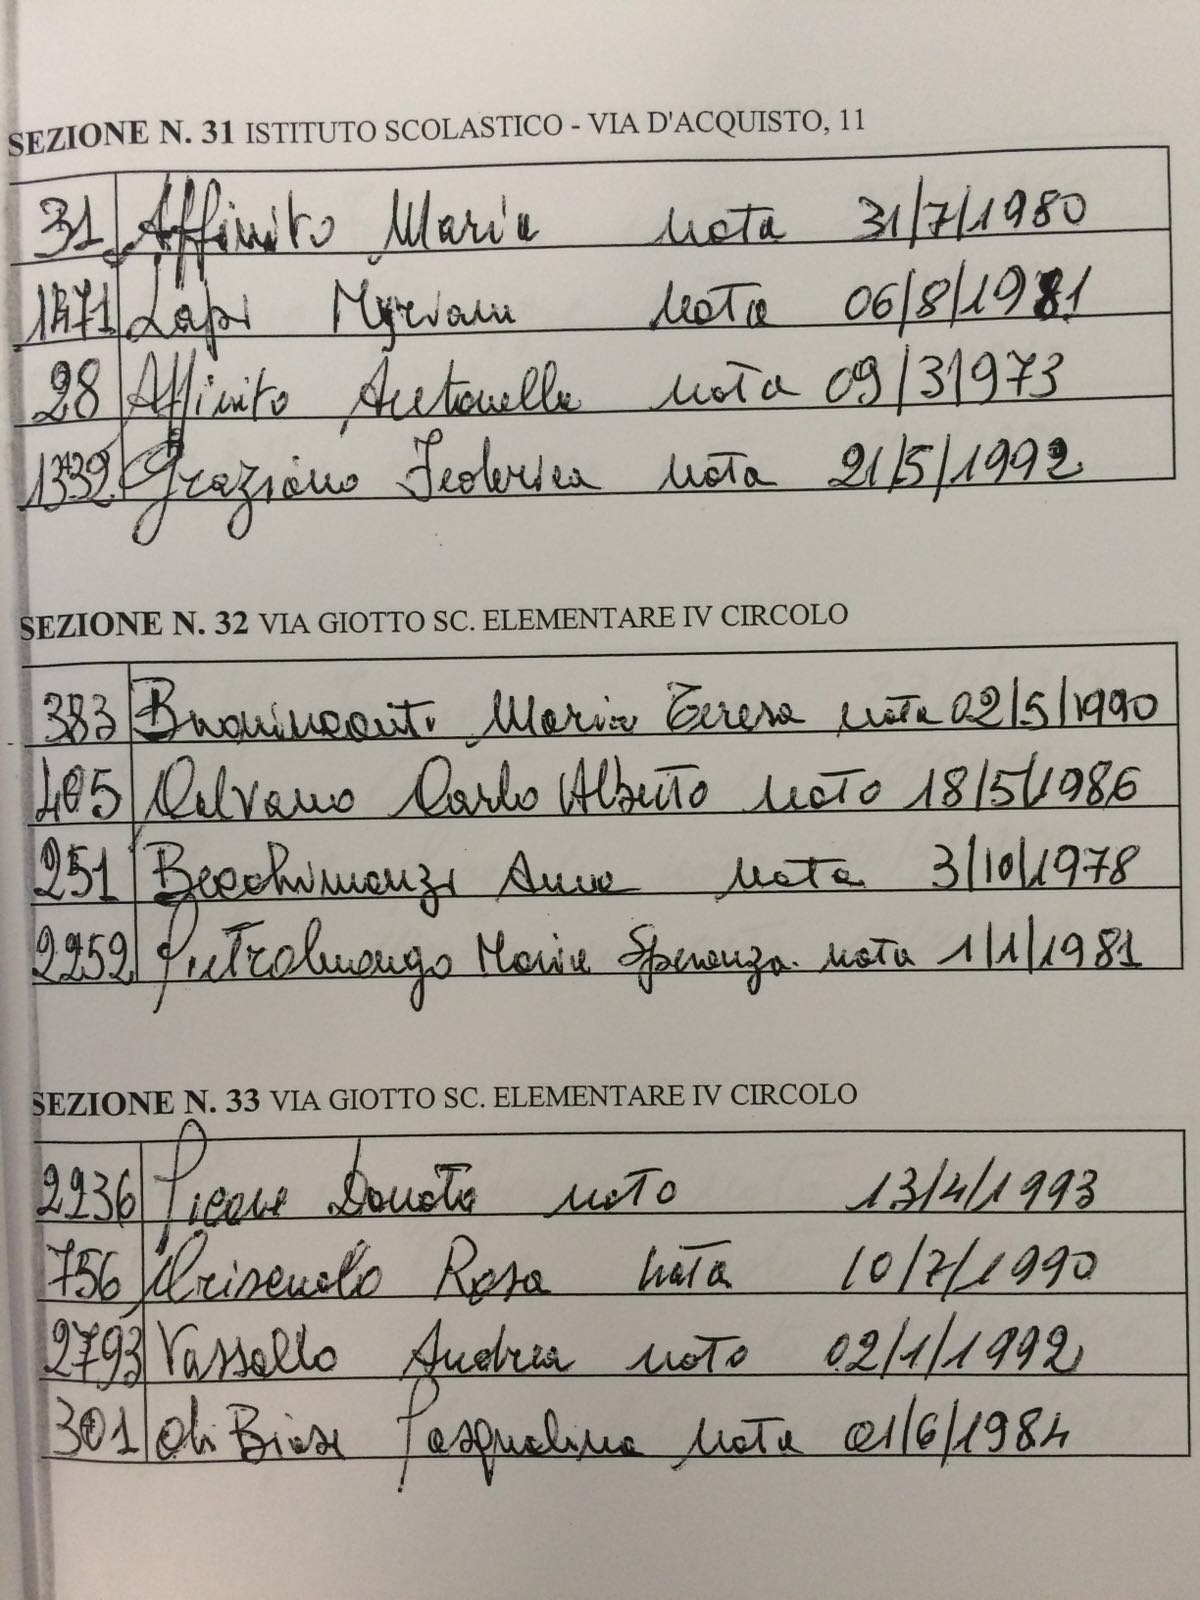 SEZIONE N. 31 ISTITUTO SCOLASTICO - VIA D'ACQUISTO, 11
31 Affinito Maria nata 31/7/1980
1471 Lapi Myriam nata 06/8/1981
28 Affinito Antonella nata 09/31973
1332 Graziano Federica nata 21/5/1992
SEZIONE N. 32 VIA GIOTTO SC. ELEMENTARE IV CIRCOLO
383 Maria Teresa nata 02/5/1990
405 Calvano Carlo Alberto nato 18/5/1986
251 Becchimanzi Anna nata 3/10/1978
2252 Pietroluongo Maria Speranza nata 1/1/1981
SEZIONE N. 33 VIA GIOTTO SC. ELEMENTARE IV CIRCOLO
2236 Picone Donato nato 13/4/1993
756 Rosa nata 10/7/1990
2793 Vassallo Andrea nato 02/1/1992
301 di Biase Pasqualina nata 01/6/1984